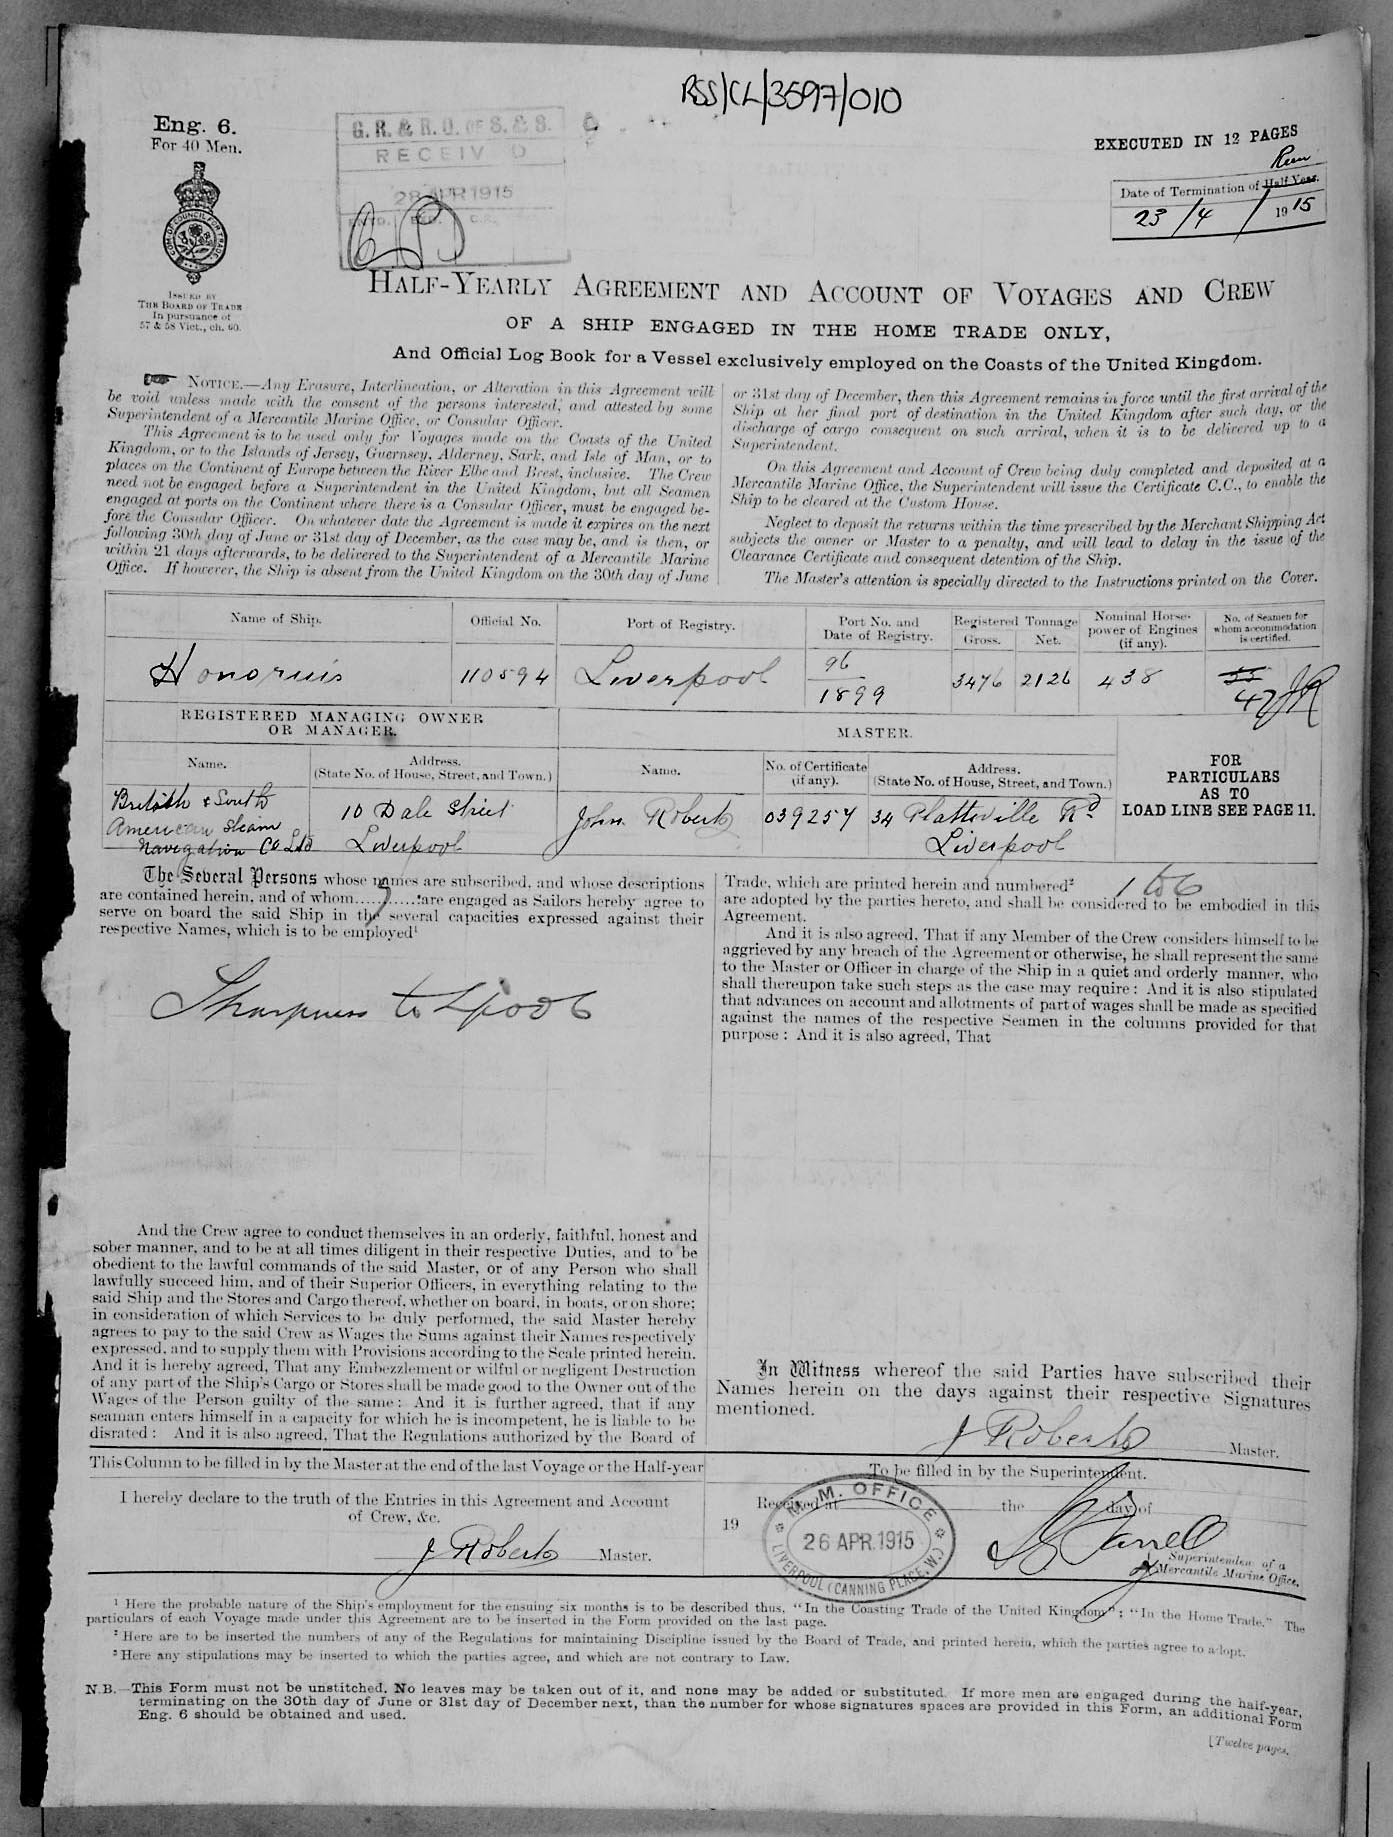 RSS/CL/3597/010
Eng. 6.
For 40 Men.
G. R. & R. O. OF S. & S.
RECEIV D
28 APR 1915
EXECUTED IN 12 PAGES
Run
Date of Termination of Half Year.
23/4/1915
COM. OF COUNCIL FOR TRADE
ISSUED BY
THE BOARD OF TRADE
In pursuance of
57 & 58 Vict., ch. 60.
HALF-YEARLY AGREEMENT AND ACCOUNT OF VOYAGES AND CREW
OF A SHIP ENGAGED IN THE HOME TRADE ONLY,
And Official Log Book for a Vessel exclusively employed on the Coasts of the United Kingdom.
NOTICE.—Any Erasure, Interlineation, or Alteration in this Agreement will
be void unless made with the consent of the persons interested, and attested by some
Superintendent of a Mercantile Marine Office, or Consular Officer.
This Agreement is to be used only for Voyages made on the Coasts of the United
Kingdom, or to the Islands of Jersey, Guernsey, Alderney, Sark, and Isle of Man, or to
places on the Continent of Europe between the River Elbe and Brest, inclusive. The Crew
need not be engaged before a Superintendent in the United Kingdom, but all Seamen
engaged at ports on the Continent where there is a Consular Officer, must be engaged be-
fore the Consular Officer. On whatever date the Agreement is made it expires on the next
following 30th day of June or 31st day of December, as the case may be, and is then, or
within 21 days afterwards, to be delivered to the Superintendent of a Mercantile Marine
Office. If however, the Ship is absent from the United Kingdom on the 30th day of June
or 31st day of December, then this Agreement remains in force until the first arrival of the
Ship at her final port of destination in the United Kingdom after such day, or the
discharge of cargo consequent on such arrival, when it is to be delivered up to a
Superintendent.
On this Agreement and Account of Crew being duly completed and deposited at a
Mercantile Marine Office, the Superintendent will issue the Certificate C.C., to enable the
Ship to be cleared at the Custom House.
Neglect to deposit the returns within the time prescribed by the Merchant Shipping Act
subjects the owner or Master to a penalty, and will lead to delay in the issue of the
Clearance Certificate and consequent detention of the Ship.
The Master's attention is specially directed to the Instructions printed on the Cover.
Name of Ship. Official No. Port of Registry. Port No. and Date of Registry. Registered Tonnage Gross. Net. Nominal Horse-power of Engines (if any). No. of Seamen for whom accommodation is certified.
Honorius 110594 Liverpool 96/1899 3476 2126 438 42 JR
REGISTERED MANAGING OWNER
OR MANAGER.
MASTER.
Name. Address. (State No. of House, Street, and Town.) Name. No. of Certificate (if any). Address. (State No. of House, Street, and Town.)
FOR
PARTICULARS
AS TO
LOAD LINE SEE PAGE 11.
British & South
American Steam
Navigation Co Ltd
10 Dale Street
Liverpool
John Roberts
039257
34 Plattsville Rd
Liverpool
The Several Persons whose names are subscribed, and whose descriptions
are contained herein, and of whom 7 are engaged as Sailors hereby agree to
serve on board the said Ship in the several capacities expressed against their
respective Names, which is to be employed¹
Sharpness to Lpool
Trade, which are printed herein and numbered² 1 to 6
are adopted by the parties hereto, and shall be considered to be embodied in this
Agreement.
And it is also agreed, That if any Member of the Crew considers himself to be
aggrieved by any breach of the Agreement or otherwise, he shall represent the same
to the Master or Officer in charge of the Ship in a quiet and orderly manner, who
shall thereupon take such steps as the case may require: And it is also stipulated
that advances on account and allotments of part of wages shall be made as specified
against the names of the respective Seamen in the columns provided for that
purpose: And it is also agreed, That
And the Crew agree to conduct themselves in an orderly, faithful, honest and
sober manner, and to be at all times diligent in their respective Duties, and to be
obedient to the lawful commands of the said Master, or of any Person who shall
lawfully succeed him, and of their Superior Officers, in everything relating to the
said Ship and the Stores and Cargo thereof, whether on board, in boats, or on shore;
in consideration of which Services to be duly performed, the said Master hereby
agrees to pay to the said Crew as Wages the Sums against their Names respectively
expressed, and to supply them with Provisions according to the Scale printed herein.
And it is hereby agreed, That any Embezzlement or wilful or negligent Destruction
of any part of the Ship's Cargo or Stores shall be made good to the Owner out of the
Wages of the Person guilty of the same: And it is further agreed, that if any
seaman enters himself in a capacity for which he is incompetent, he is liable to be
disrated: And it is also agreed, That the Regulations authorized by the Board of
In Witness whereof the said Parties have subscribed their
Names herein on the days against their respective Signatures
mentioned.
J Roberts Master.
This Column to be filled in by the Master at the end of the last Voyage or the Half-year
I hereby declare to the truth of the Entries in this Agreement and Account
of Crew, &c.
J Roberts Master.
To be filled in by the Superintendent.
Received at the day of
19
M. M. OFFICE
26 APR. 1915
LIVERPOOL (CANNING PLACE, W.)
Superintendent of a
Mercantile Marine Office.
¹ Here the probable nature of the Ship's employment for the ensuing six months is to be described thus, "In the Coasting Trade of the United Kingdom"; "In the Home Trade." The
particulars of each Voyage made under this Agreement are to be inserted in the Form provided on the last page.
² Here are to be inserted the numbers of any of the Regulations for maintaining Discipline issued by the Board of Trade, and printed herein, which the parties agree to adopt.
³ Here any stipulations may be inserted to which the parties agree, and which are not contrary to Law.
N.B.—This Form must not be unstitched. No leaves may be taken out of it, and none may be added or substituted. If more men are engaged during the half-year,
terminating on the 30th day of June or 31st day of December next, than the number for whose signatures spaces are provided in this Form, an additional Form
Eng. 6 should be obtained and used.
[Twelve pages.